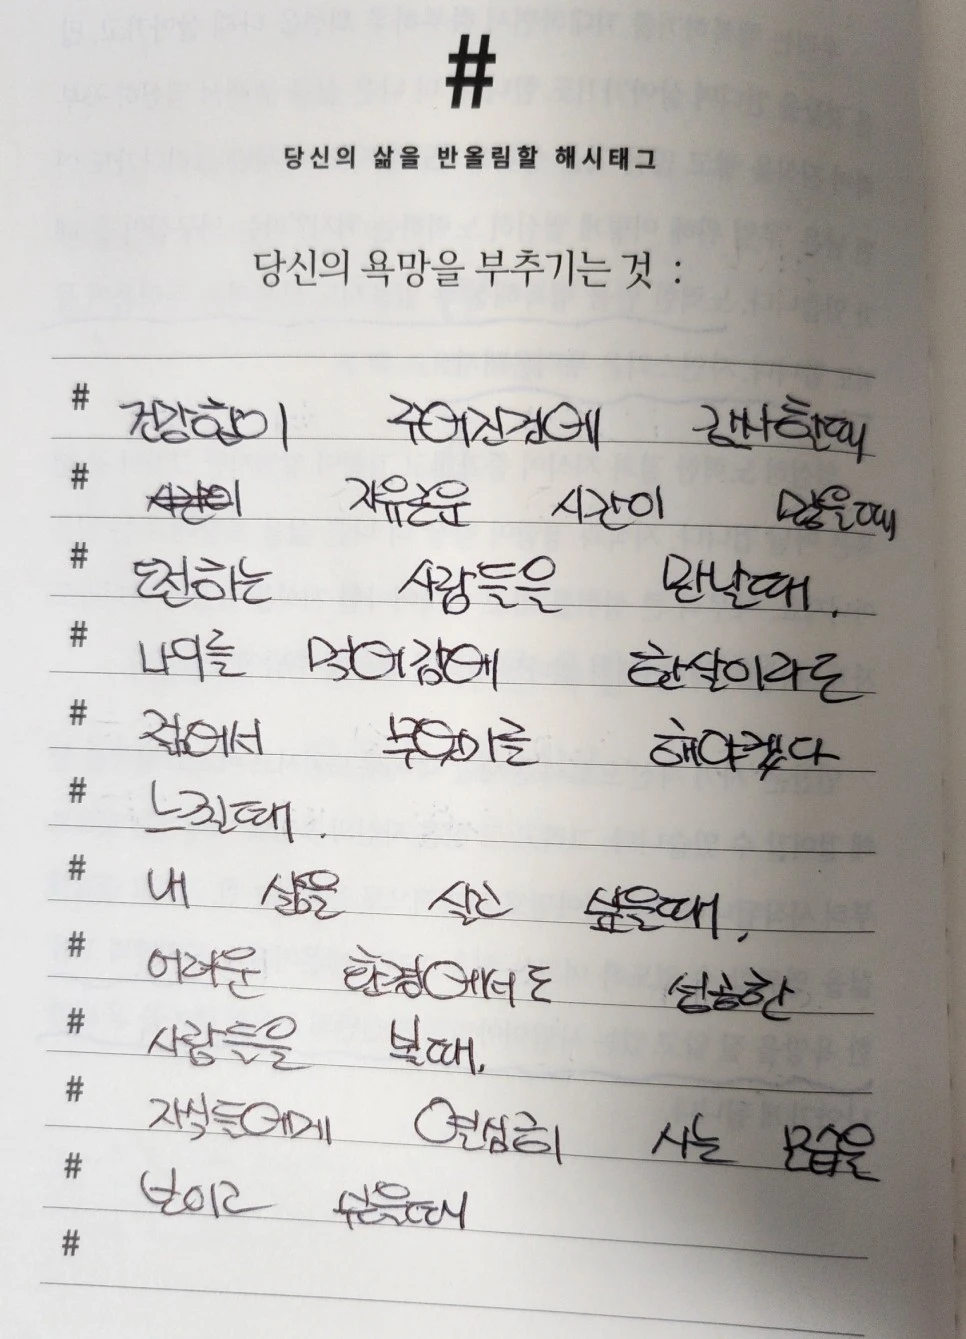 #
당신의 삶을 반올림할 해시태그
당신의 욕망을 부추기는 것 :
# 건강함이 주어진것에 감사할때
# 자유로운 시간이 많을때
# 도전하는 사람들을 만날때.
# 나이를 먹어감에 한살이라도
# 젊어서 무엇이를 해야겠다
# 느낄때.
# 내 삶을 살고 싶을때.
# 어려운 환경에서도 성공한
# 사람들을 볼때.
# 자식들에게 열심히 사는 모습을
# 보이고 싶을때
#